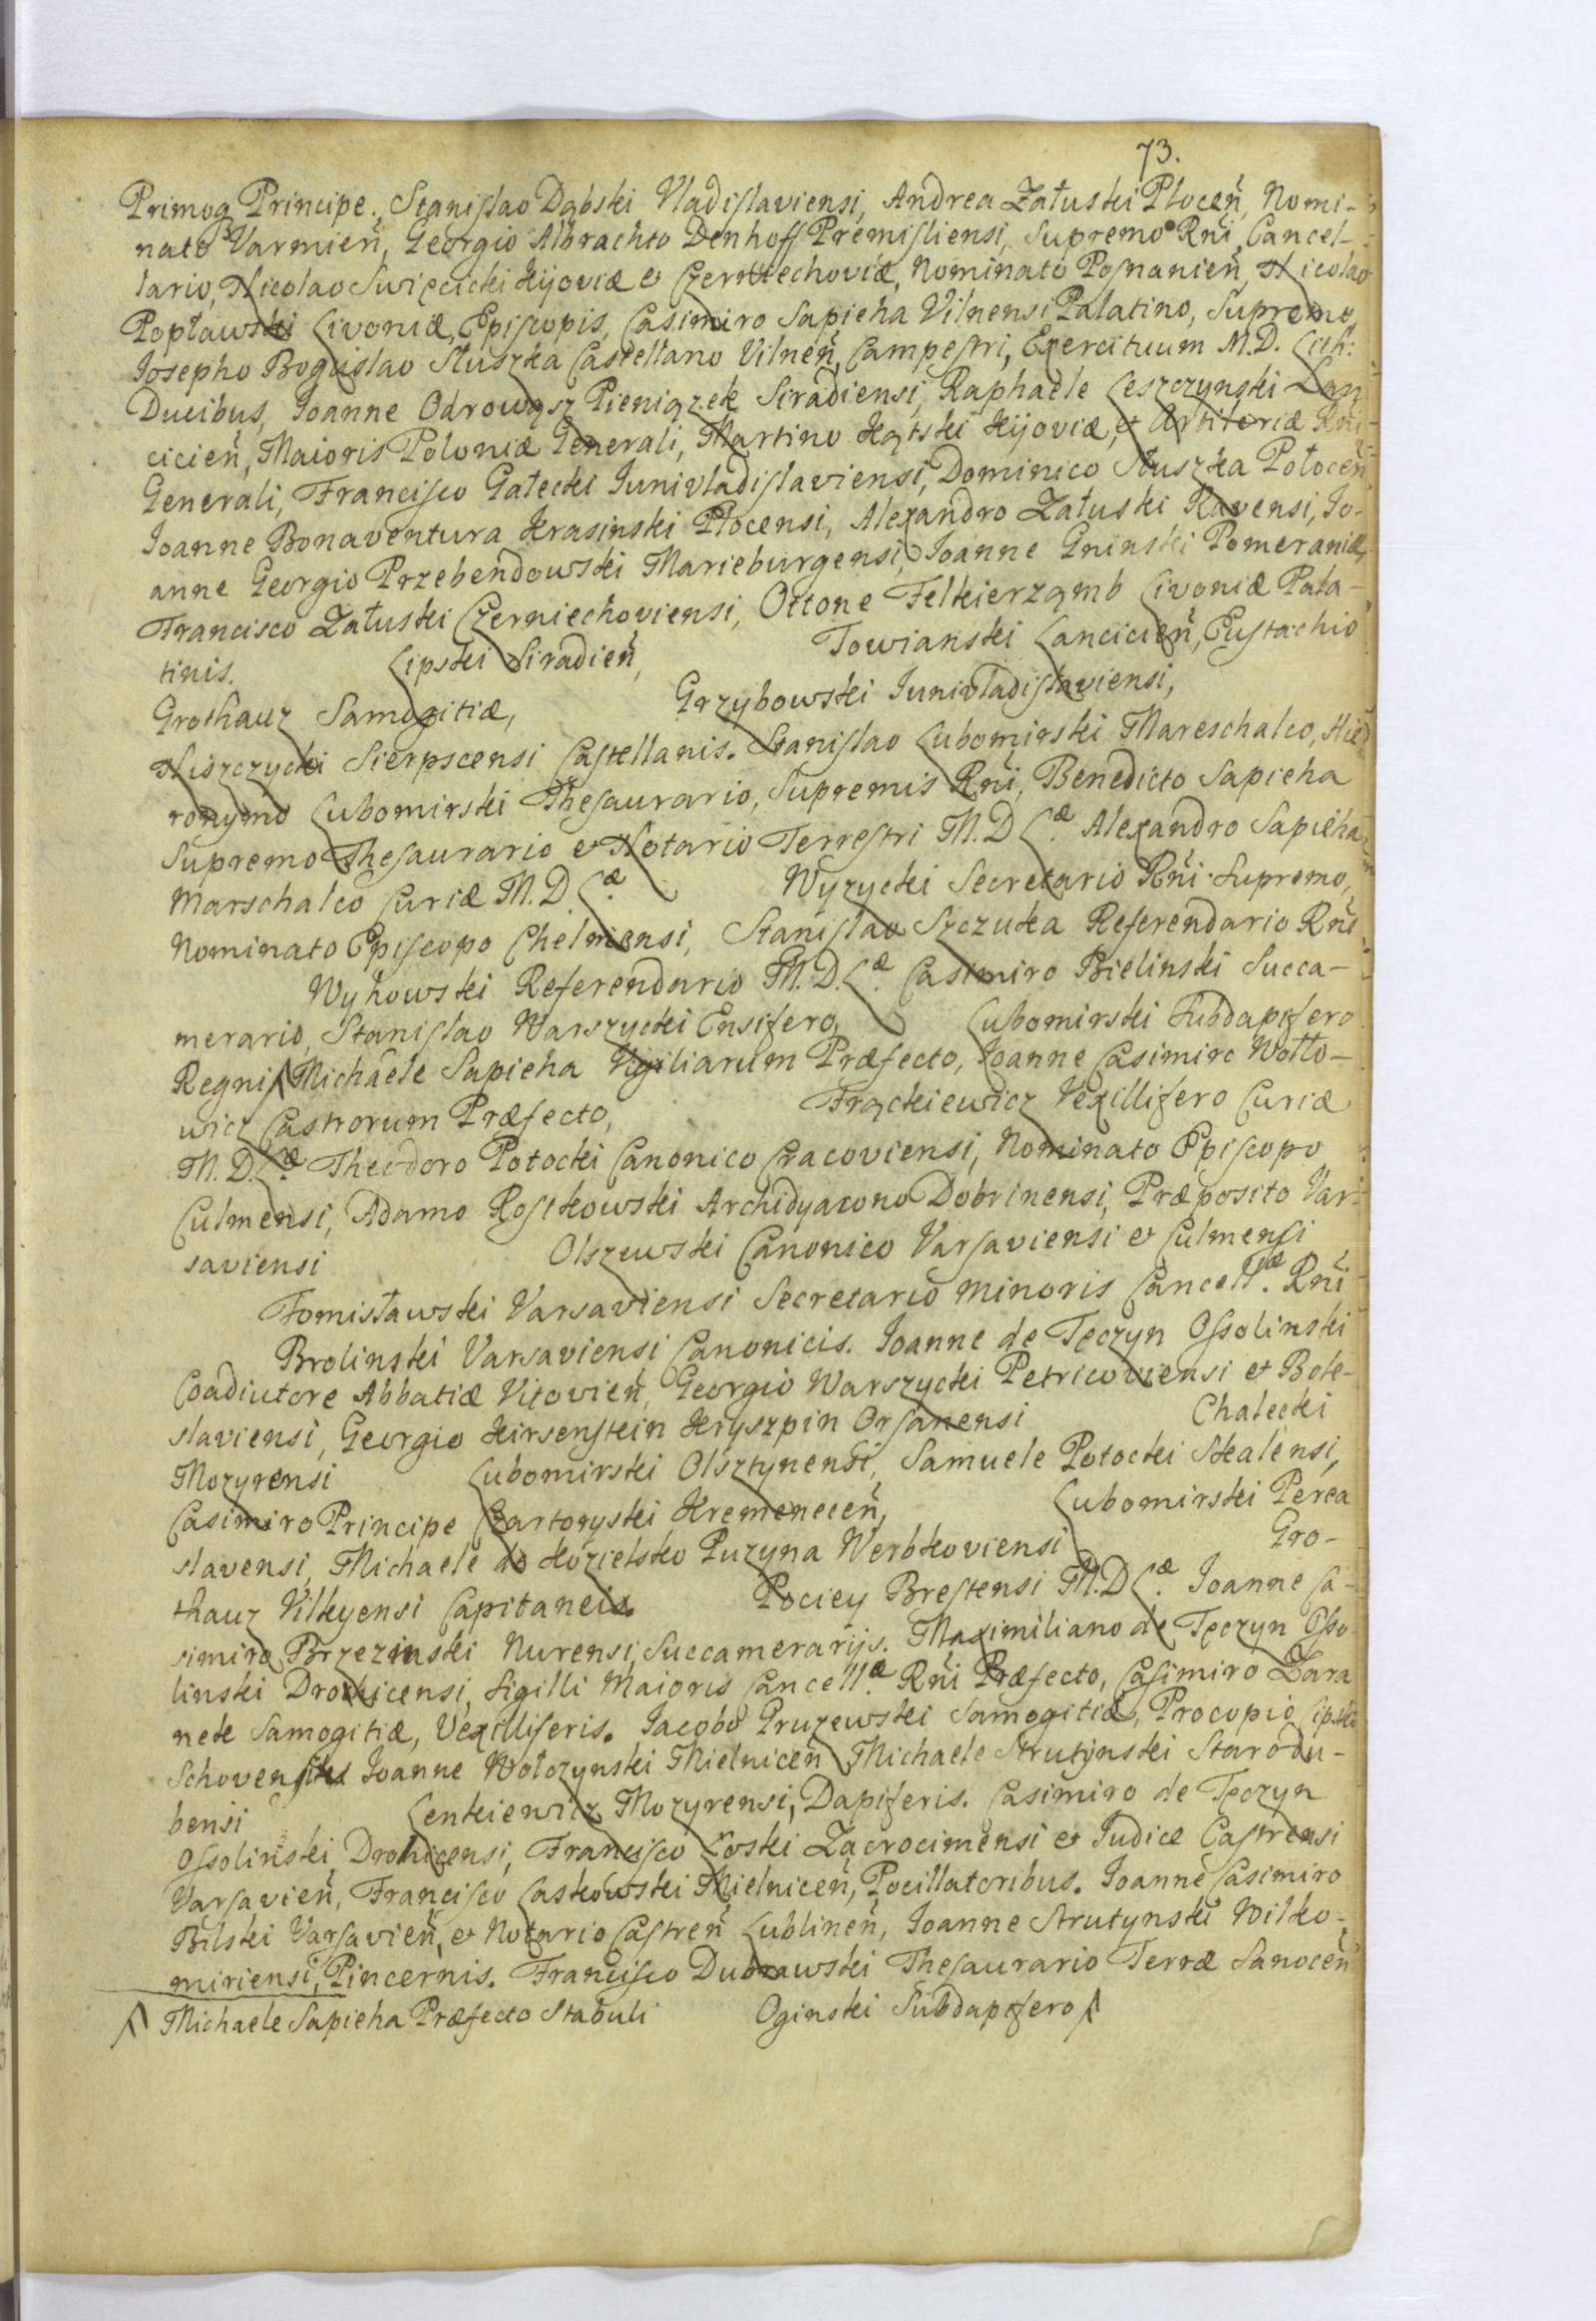 73.
Primog Principe., Stanislao Dąbski Vladislaviensi, Andrea Załuski Płoceñ, Nomi-
nato Varmieñ, Georgio Albrachto Denhoff Premisliensi, Supremo Rñi Cancel-
lario, Nicolao Swięcicki Kijoviæ et Czerniechoviæ, Nominato Posnanieñ, Nicolao
Popławski Livoniæ, Episcopis, Casimiro Sapieha Vilnensi Palatino, Supremo,
Josepho Boguslao Słuszka Castellano Vilneñ, Campestri, Exercituum M.D. Lith:
Ducibus, Joanne Odrowąsz Pieniązek Siradiensi, Raphaele Leszczynski Lan
cicieñ, Maioris Poloniæ Generali, Martino Kątski Kijoviæ, et Artileriæ Rñi
Generali, Francisco Gałecki Junivladislaviensi, Dominico Słuszka Połoceñ
Joanne Bonaventura Krasinski Płocensi, Alexandro Załuski Ravensi, Jo-
anne Georgio Przebendowski Marieburgensi, Joanne Gninski Pomeraniæ,
Francisco Załuski Czerniechoviensi, Ottone Felkierzamb Livoniæ Pala-
tinis. Lipski Siradieñ, Towianski Lancicieñ, Eustachio
Grothauz Samogitiæ, Grzybowski Junivladislaviensi,
Niszczycki Sierpscensi Castellanis. Stanislao Lubomirski Mareschalco, Hie
ronymo Lubomirski Thesaurario, Supremis Rñi, Benedicto Sapieha
Supremo Thesaurario et Notario Terrestri M.D.L.æ Alexandro Sapieha
Marschalco Curiæ M.D.L.æ Wyzycki Secretario Rñi Supremo,
Nominato Episcopo Chelmensi, Stanislao Szczuka Referendario Rñi
Wyhowski Referendario M.D.L.æ Casimiro Bielinski Succa-
merario, Stanislao Warszycki Ensifero, Lubomirski Subdapifero
Regni Michaele Sapieha Vigiliarum Præfecto, Joanne Casimiro Wołło-
wicz Castrorum Præfecto, Frąckiewicz Vexillifero Curiæ
M.D.L.æ Theodoro Potocki Canonico Cracoviensi, Nominato Episcopo
Culmensi, Adamo Rostkowski Archidyacono Dobrinensi, Præposito Var-
saviensi Olszewski Canonico Varsaviensi et Culmensi
Tomisławski Varsaviensi Secretario minoris Cancell.æ Rñi
Brolinski Varsaviensi Canonicis. Joanne de Tęczyn Ossolinski
Coadiutore Abbatiæ Vitovieñ, Georgio Warszycki Petricoviensi et Bole-
slaviensi, Georgio Kirsenstein Kryszpin Orsanensi Chalecki
Mozyrensi Lubomirski Olsztynensi, Samuele Potocki Skalensi,
Casimiro Principe Czartoryski Kremeneceñ, Lubomirski Perea
slavensi, Michaele de Kozielsko Puzyna Werbkoviensi Gro-
thauz Vilkyensi Capitaneis. Pociey Brestensi M.D.L.æ Joanne Ca-
simiro Brzezinski Nurensi, Succamerarijs. Maximiliano de Tęczyn Osso
linski Drohicensi, Sigilli Maioris Cancell.æ Rñi Præfecto, Casimiro Zara
nek Samogitiæ, Vexilliferis. Jacobo Gruzewski Samogitiæ, Procopio Lipski
Joanne Wołczynski Mielniceñ Michaele Strutynski Starodu-
bensi Lenkiewicz Mozyrensi, Dapiferis. Casimiro de Tęczyn
Ossolinski, Drohicensi, Francisco Łoski Zacrocimensi et Judice Castrensi
Varsavieñ, Francisco Laskowski Mielniceñ, Pocillatoribus. Joanne Casimiro
Bilski Varsavieñ, et Notario Castreñ Lublineñ, Joanne Strutynski Wilko-
miriensi, Pincernis. Francisco Dubrawski Thesaurario Terræ Sanoceñ
Michaele Sapieha Præfecto Stabuli Oginski Subdapifero